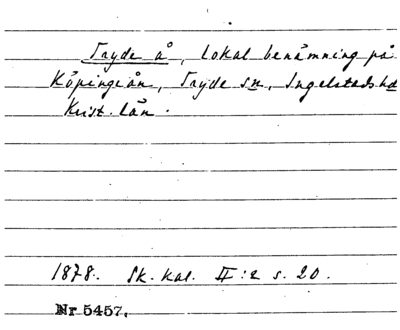 Tryde å, lokal benämning på
Köpingeån, Tryde sn, Ingelstads hd
Krist. län.
1878. Sk. kal. II:2 s. 20.
Nr 5457.